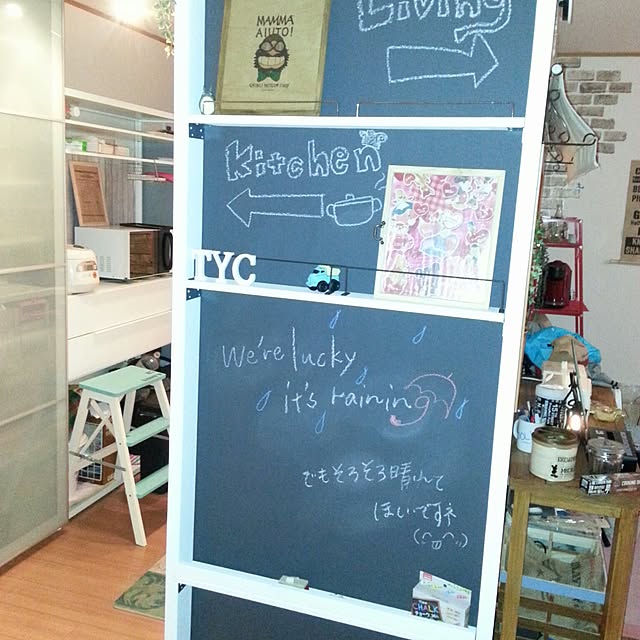 Living
MAMMA
AIUTO!
Kitchen
TYC
We're lucky
it's raining
でもそろそろ晴れて
ほしいですネ
(^ω^;)
CHALK